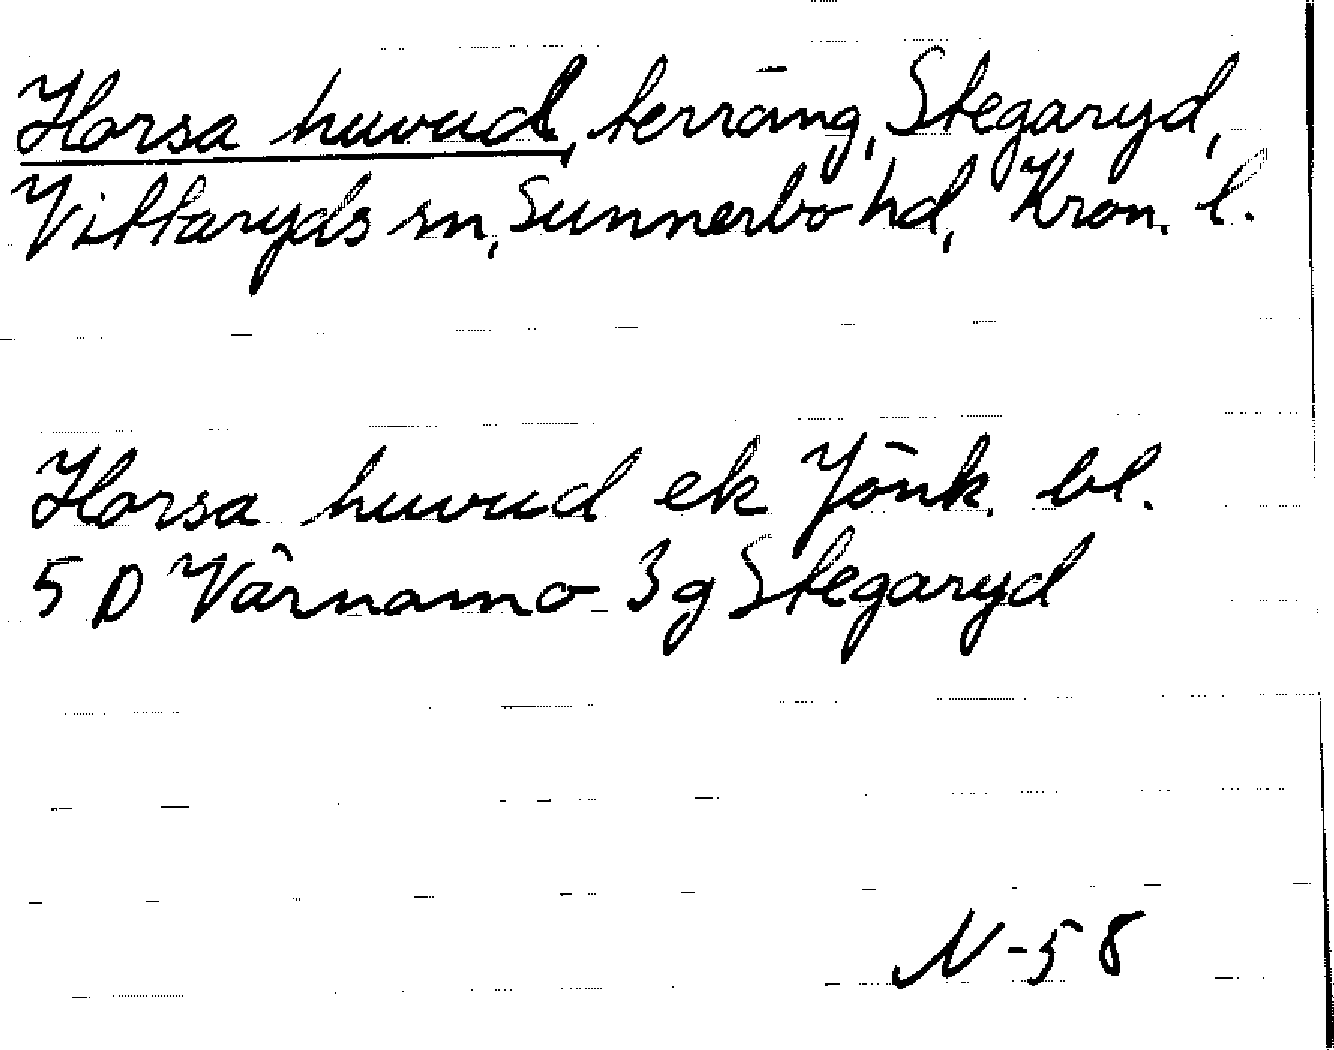 Horsa huvud, terräng, Stegaryd,
Vittaryds sn, Sunnerbo hd, Kron. l.
Horsa huvud ek Jönk. bl.
5 D Värnamo 3g Stegaryd
N-58